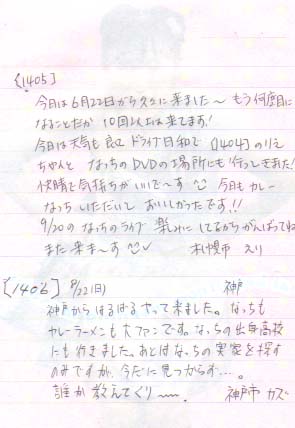 [1405]
今日は6月22日から久々に来ました〜 もう何度目に
なることだか 10回以上は来てます!
今日は天気も良く ドライブ日和で [1404]のりえ
ちゃんと なっちのDVDの場所にも行ってきました!
快晴で気持ちがいいで〜す 今日もカレー
なっちいただいて おいしかったです!!
9/20のなっちのライブ 楽しみにしてるからがんばってね
また来ま〜す 札幌市 えり
[1406] 8/22(日) 神戸
神戸からはるばるやって来ました。なっちも
カレーラーメンも大ファンです。なっちの出身高校
にも行きました。あとはなっちの実家を探す
のみですが、今だに見つからず…。
誰か教えてくり〜〜。 神戸市 カズ